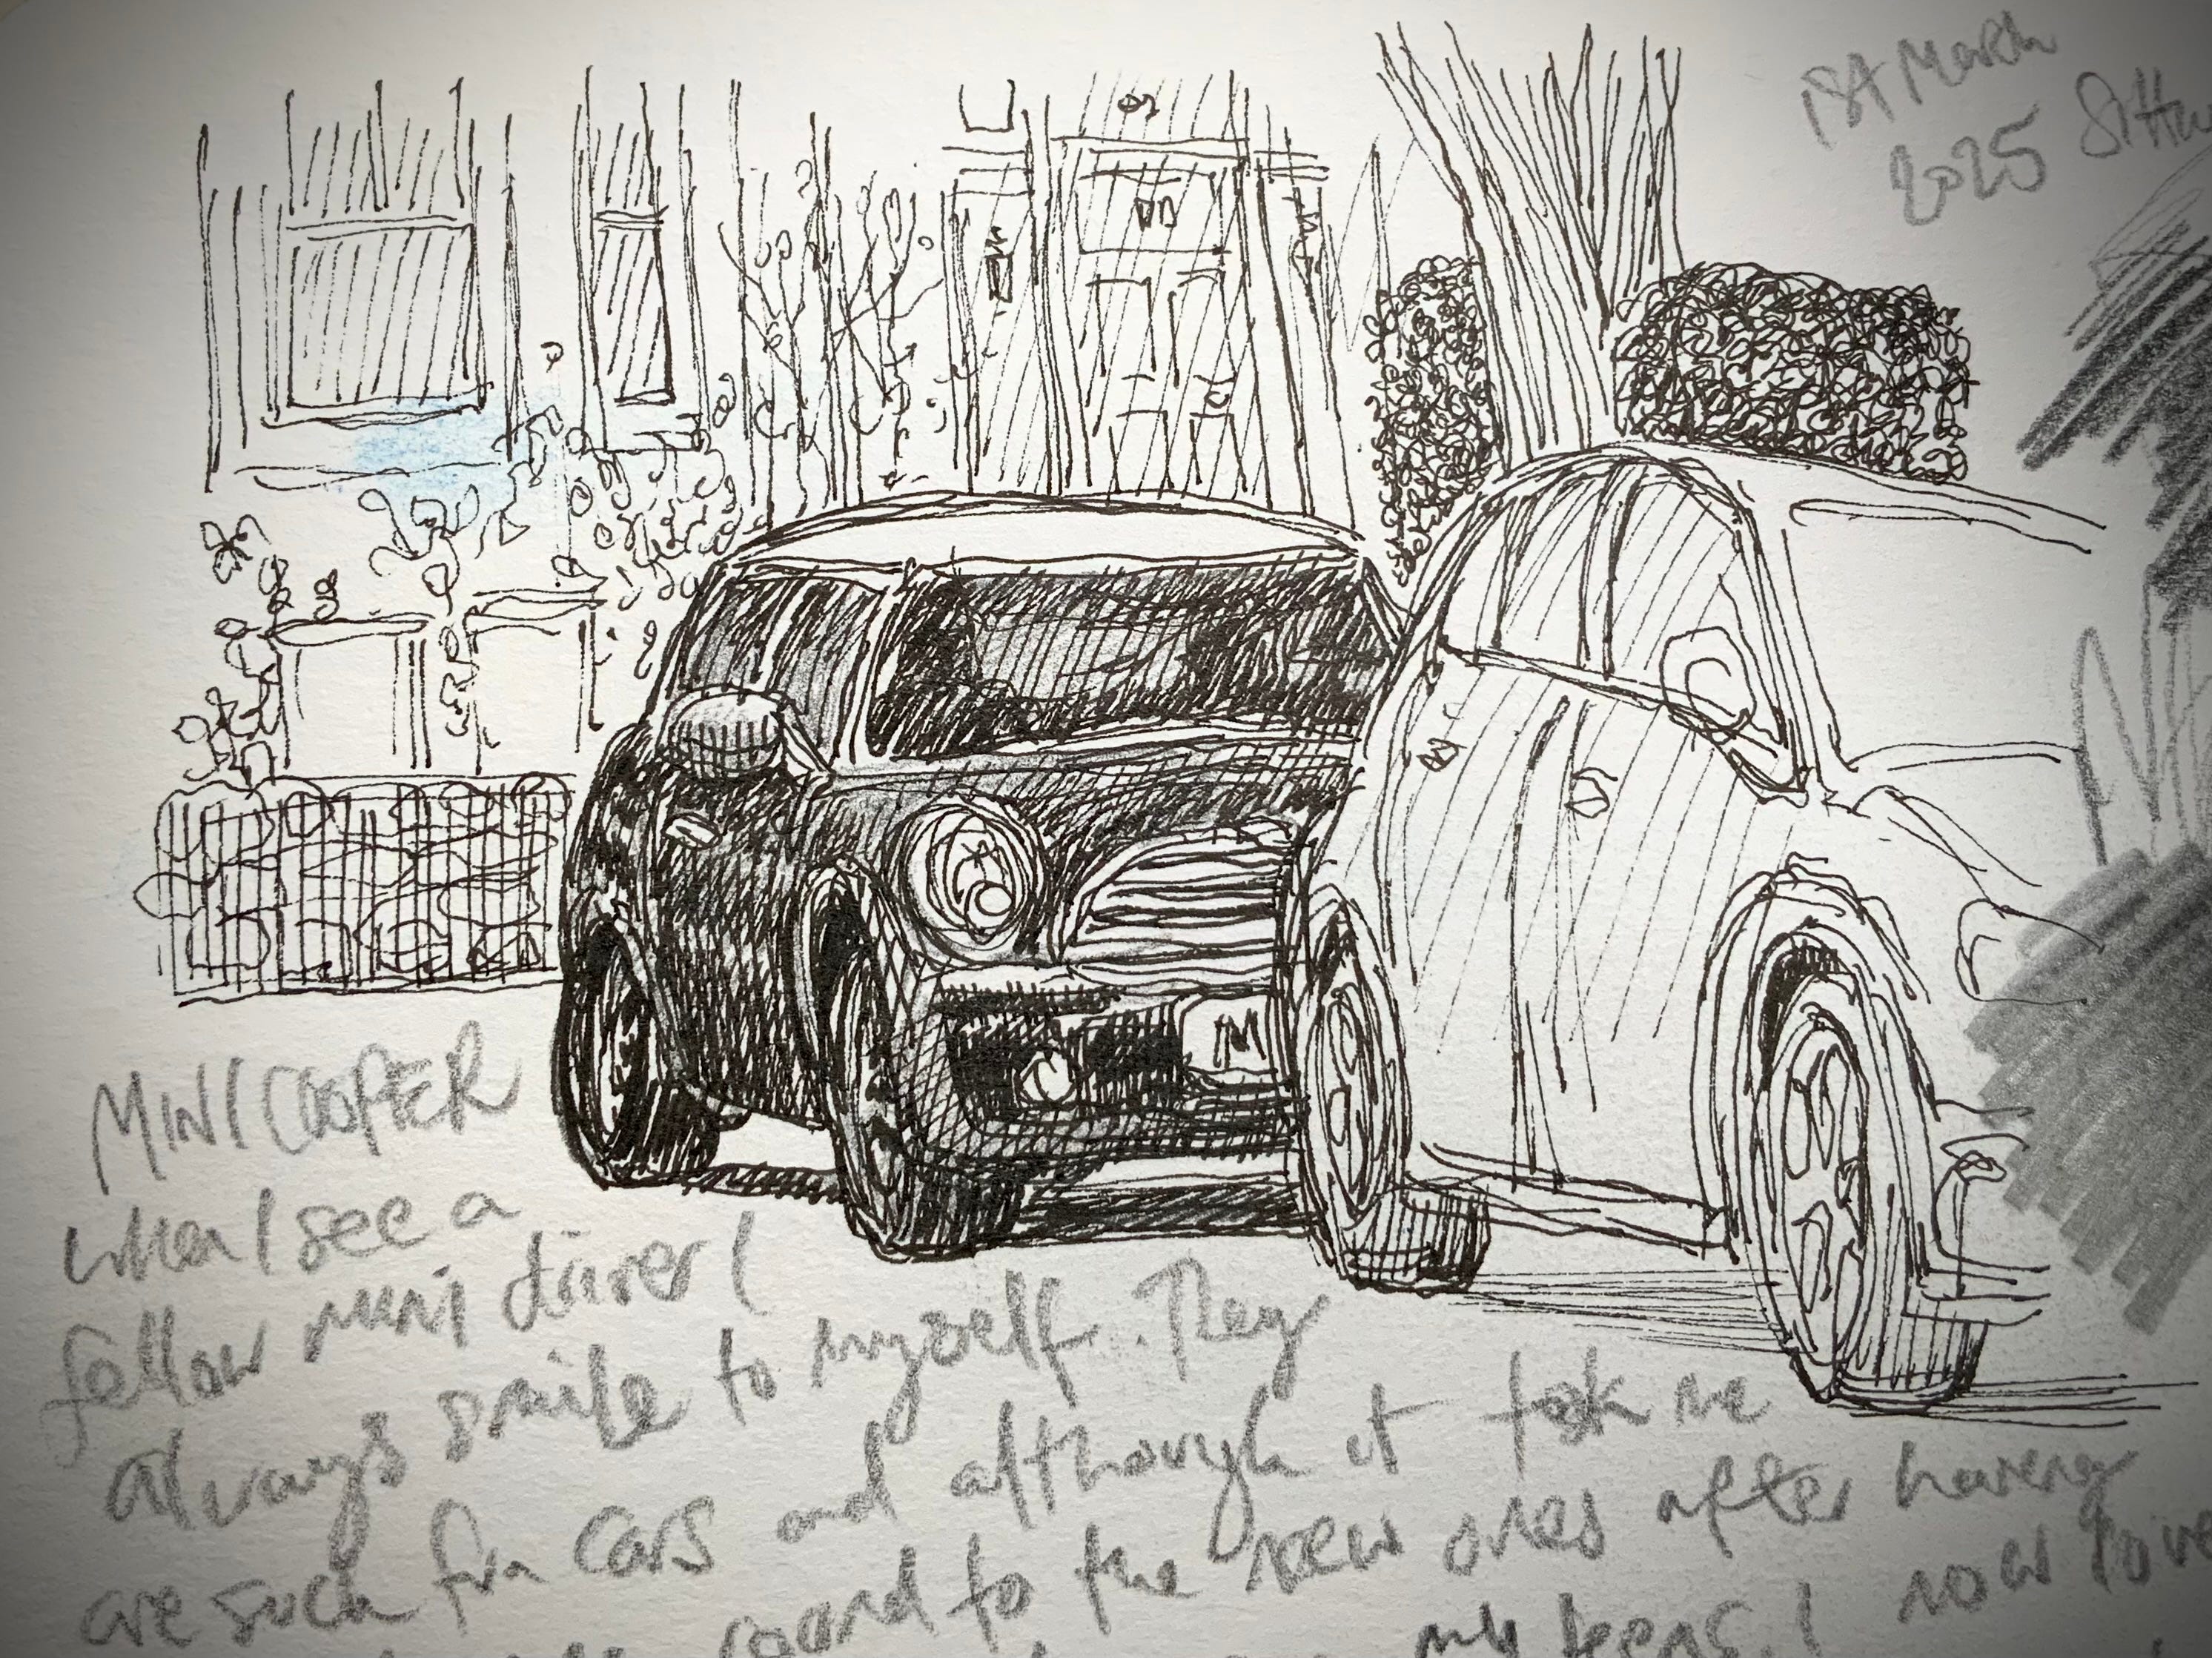 1st March
2025 Sittin
M
MINI COOPER
When I see a
fellow mini driver I
always smile to myself. They
are such fun cars and although it took me
round to the new ones after having
my teens. I now love